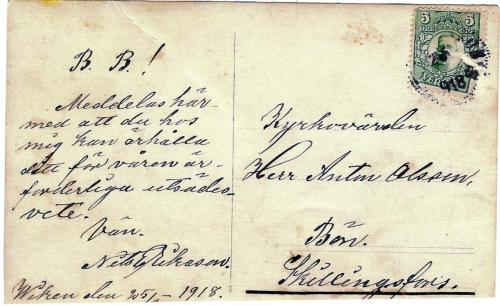 B. B.!
Meddelas här-
med att du hos
mig kan erhålla
ditt för våren er-
forderliga utsädes-
vete.
Vän.
Nils Erikson.
Wiken den 25/1 - 1918.
5 5
ÖRE ÖRE
Kyrkovärden
Herr Anton Olsson.
Bön.
Skillingsfors.